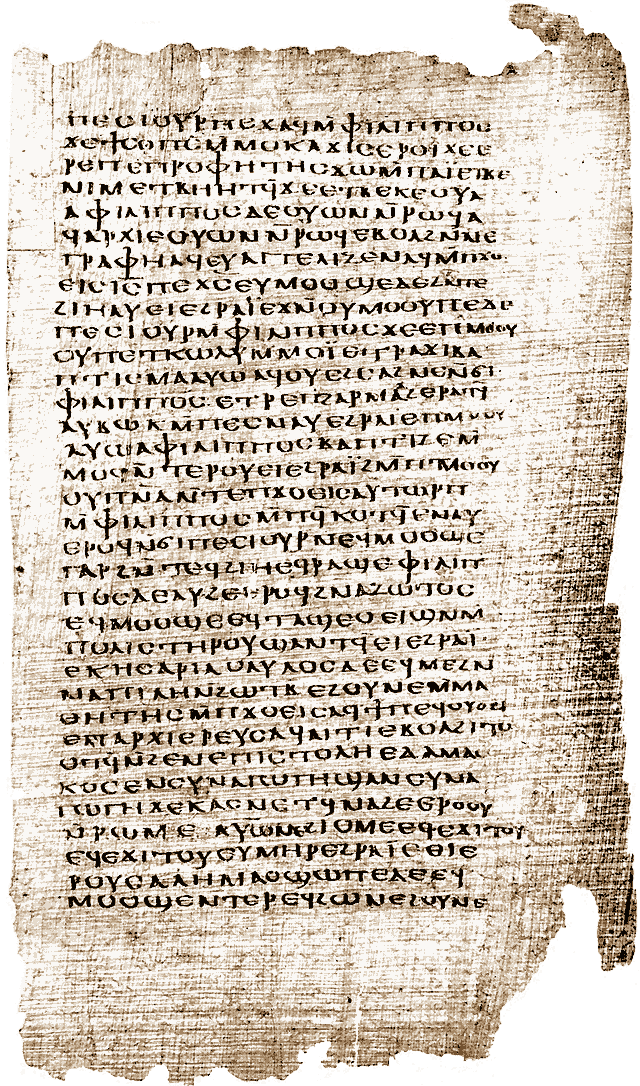 ⲡⲉⲥⲓⲟⲩⲣⲡⲉϫⲁϥⲙ̄ⲫⲓⲗⲓⲡⲡⲟⲥ
ϫⲉϯⲥⲟⲡⲥ̄ⲙⲙⲟⲕⲁϫⲓⲥⲉⲣⲟⲓ̈ϫⲉⲉ
ⲣⲉⲡⲉⲡⲣⲟⲫⲏⲧⲏⲥϫⲱⲙ̄ⲡⲁⲓ̈ⲉⲧⲃⲉ
ⲛⲓⲙⲉⲧⲃⲏⲏⲧϥ̄ϫⲉⲉⲧⲃⲉⲕⲉⲟⲩⲁ
ⲁⲫⲓⲗⲓⲡⲡⲟⲥⲇⲉⲟⲩⲱⲛⲛ̄ⲣⲱϥⲁ
ϥⲁⲣⲭⲓⲉⲟⲩⲱⲛⲛ̄ⲣⲱϥⲉⲃⲟⲗϩⲛ̄ⲛⲉ
ⲅⲣⲁⲫⲏⲁϥⲉⲩⲁⲅⲅⲉⲗⲓⲍⲉⲛⲁϥⲙ̄ⲡϫⲟ
ⲉⲓⲥⲓ̄ⲥ̄ⲡⲉⲭ̄ⲥ̄ⲉⲩⲙⲟⲟϣⲉⲇⲉϩⲛ̄ⲧⲉ
ϩⲓⲏⲁⲩⲉⲓⲉϩⲣⲁⲓ̈ⲉϫⲛ̄ⲟⲩⲙⲟⲟⲩⲡⲉϫⲉ
ⲡⲉⲥⲓⲟⲩⲣⲙ̄ⲫⲓⲗⲓⲡⲡⲟⲥϫⲉⲉⲓⲥⲙⲟⲟⲩ
ⲟⲩⲡⲉⲧⲕⲱⲗⲩⲙⲙⲟⲓ̈ⲉⲧⲣⲁϫⲓⲃⲁ
ⲡⲧⲓⲥⲙⲁⲁⲩⲱⲁϥⲟⲩⲉϩⲥⲁϩⲛⲉⲛϭⲓ
ⲫⲓⲗⲓⲡⲡⲟⲥⲉⲧⲣⲉⲡϩⲁⲣⲙⲁⲁϩⲉⲣⲁⲧϥ
ⲁⲩⲃⲱⲕⲙ̄ⲡⲉⲥⲛⲁⲩⲉϩⲣⲁⲓ̈ⲉⲡⲙⲟⲟⲩ
ⲁⲩⲱⲁⲫⲓⲗⲓⲡⲡⲟⲥⲃⲁⲡⲧⲓⲍⲉⲙ̄
ⲙⲟϥⲛ̄ⲧⲉⲣⲟⲩⲉⲓⲉϩⲣⲁⲓ̈ϩⲙ̄ⲡⲙⲟⲟⲩ
ⲟⲩⲡ̄ⲛ̄ⲁ̄ⲛ̄ⲧⲉⲡϫⲟⲉⲓⲥⲁϥⲧⲱⲣⲡ
ⲙ̄ⲫⲓⲗⲓⲡⲡⲟⲥⲙⲡϥ̄ⲕⲟⲧϥ̄ⲉⲛⲁⲩ
ⲉⲣⲟϥⲛ̄ϭⲓⲡⲉⲥⲓⲟⲩⲣⲛⲉϥⲙⲟⲟϣⲉ
ⲅⲁⲣϩⲛ̄ⲧⲉϥϩⲓⲏⲉϥⲣⲁϣⲉⲫⲓⲗⲓⲡ
ⲡⲟⲥⲇⲉⲁⲩϩⲉⲉⲣⲟϥϩⲛ̄ⲁⲍⲱⲧⲟⲥ
ⲉϥⲙⲟⲟϣⲉⲉϥⲧⲁϣⲉⲟⲉⲓϣⲛⲙ̄
ⲡⲟⲗⲓⲥⲧⲏⲣⲟⲩϣⲁⲛⲧϥ̄ⲉⲓⲉϩⲣⲁⲓ
ⲉⲕⲏⲥⲁⲣⲓⲁⲥⲁⲩⲗⲟⲥⲇⲉⲉϥⲙⲉϩⲛ
ⲛⲁⲡⲓⲗⲏⲛϩⲱⲧⲃⲉϩⲟⲩⲛⲉⲙ̄ⲙⲁ
ⲑⲏⲧⲏⲥⲙ̄ⲡϫⲟⲉⲓⲥⲁϥϯⲡⲉϥⲟⲩⲟⲓ
ⲉⲡⲁⲣⲭⲓⲉⲣⲉⲩⲥⲁϥⲁⲓⲧⲓⲉⲃⲟⲗϩⲓⲧⲟ
ⲟⲧϥ̄ⲛϩⲉⲛⲉⲡⲓⲥⲧⲟⲗⲏⲉⲇⲁⲙⲁⲥ
ⲕⲟⲥⲉⲛⲥⲩⲛⲁⲅⲱⲅⲏϣⲁⲛⲥⲩⲛⲁ
ⲅⲱⲅⲏϫⲉⲕⲁⲥⲛⲉⲧϥ̄ⲛⲁϩⲉⲉⲣⲟⲟⲩ
ⲛ̄ⲣⲱⲙⲉⲁⲩⲱⲛⲉϩⲓⲟⲙⲉⲉϥⲉϫⲓⲧⲟⲩ
ⲉϥⲉϫⲓⲧⲟⲩⲉⲩⲙⲏⲣⲉϩⲣⲁⲓⲉⲑⲓⲉ
ⲣⲟⲩⲥⲁⲗⲏⲙⲁⲥϣⲱⲡⲉⲇⲉⲉϥ
ⲙⲟⲟϣⲉⲛⲧⲉⲣⲉϥϩⲱⲛⲉϩⲟⲩⲛⲉ